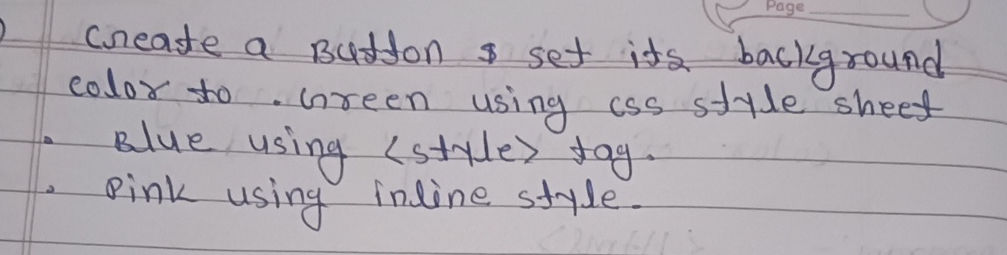 Page
Create a Button & set its background
color to . Green using css style sheet
. Blue using <style> tag.
. Pink using inline style.